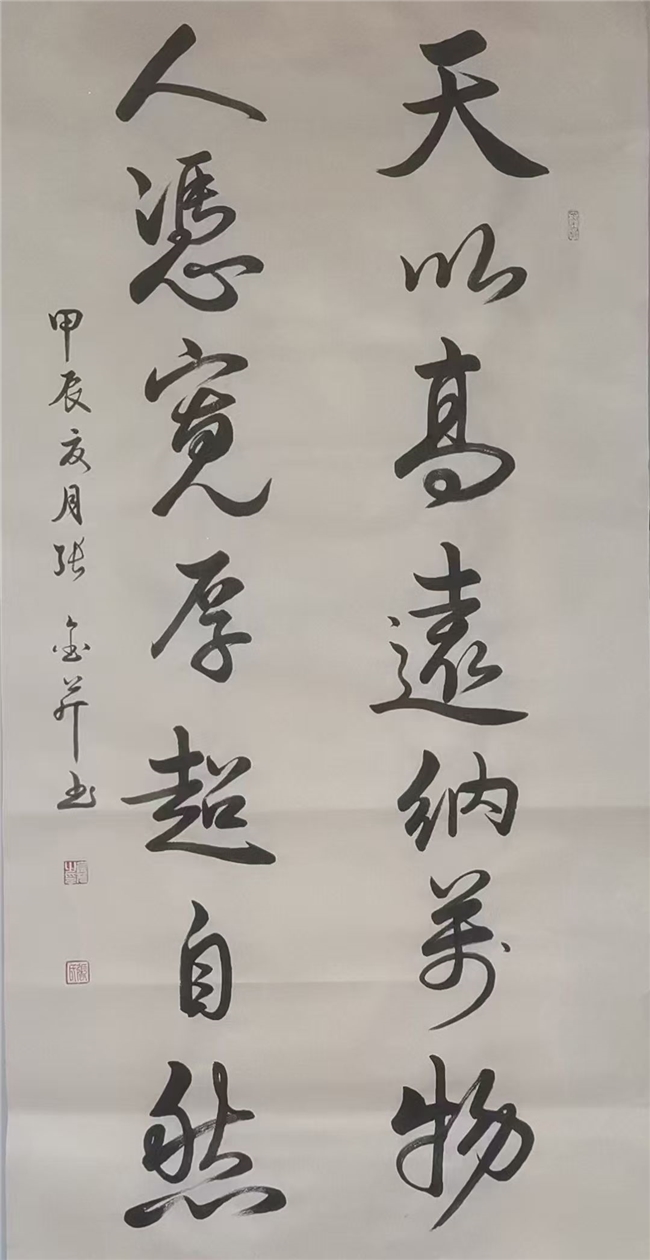 天以高遠納萬物
人憑寬厚超自然
甲辰夏月張金書